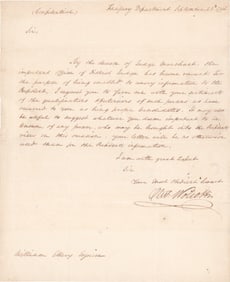 Treasury Department
Sir
By the decease of Judge Marchant, the
important Office of District Judge has become vacant. For
the purpose of being enabled to convey information to the
President, I request you to favour me with your
of the qualifications & pretensions of such persons as have
occurred to you as being proper candidates. It may also
be useful to suggest whatever you deem important to be
known of any person, who may be brought into the President's
view on this occasion; your letter will be no otherwise
used than for the President's information.
I am with great respect
Sir
Your Most Obedient Servant
Oliv. Wolcott
William Ellery Esquire